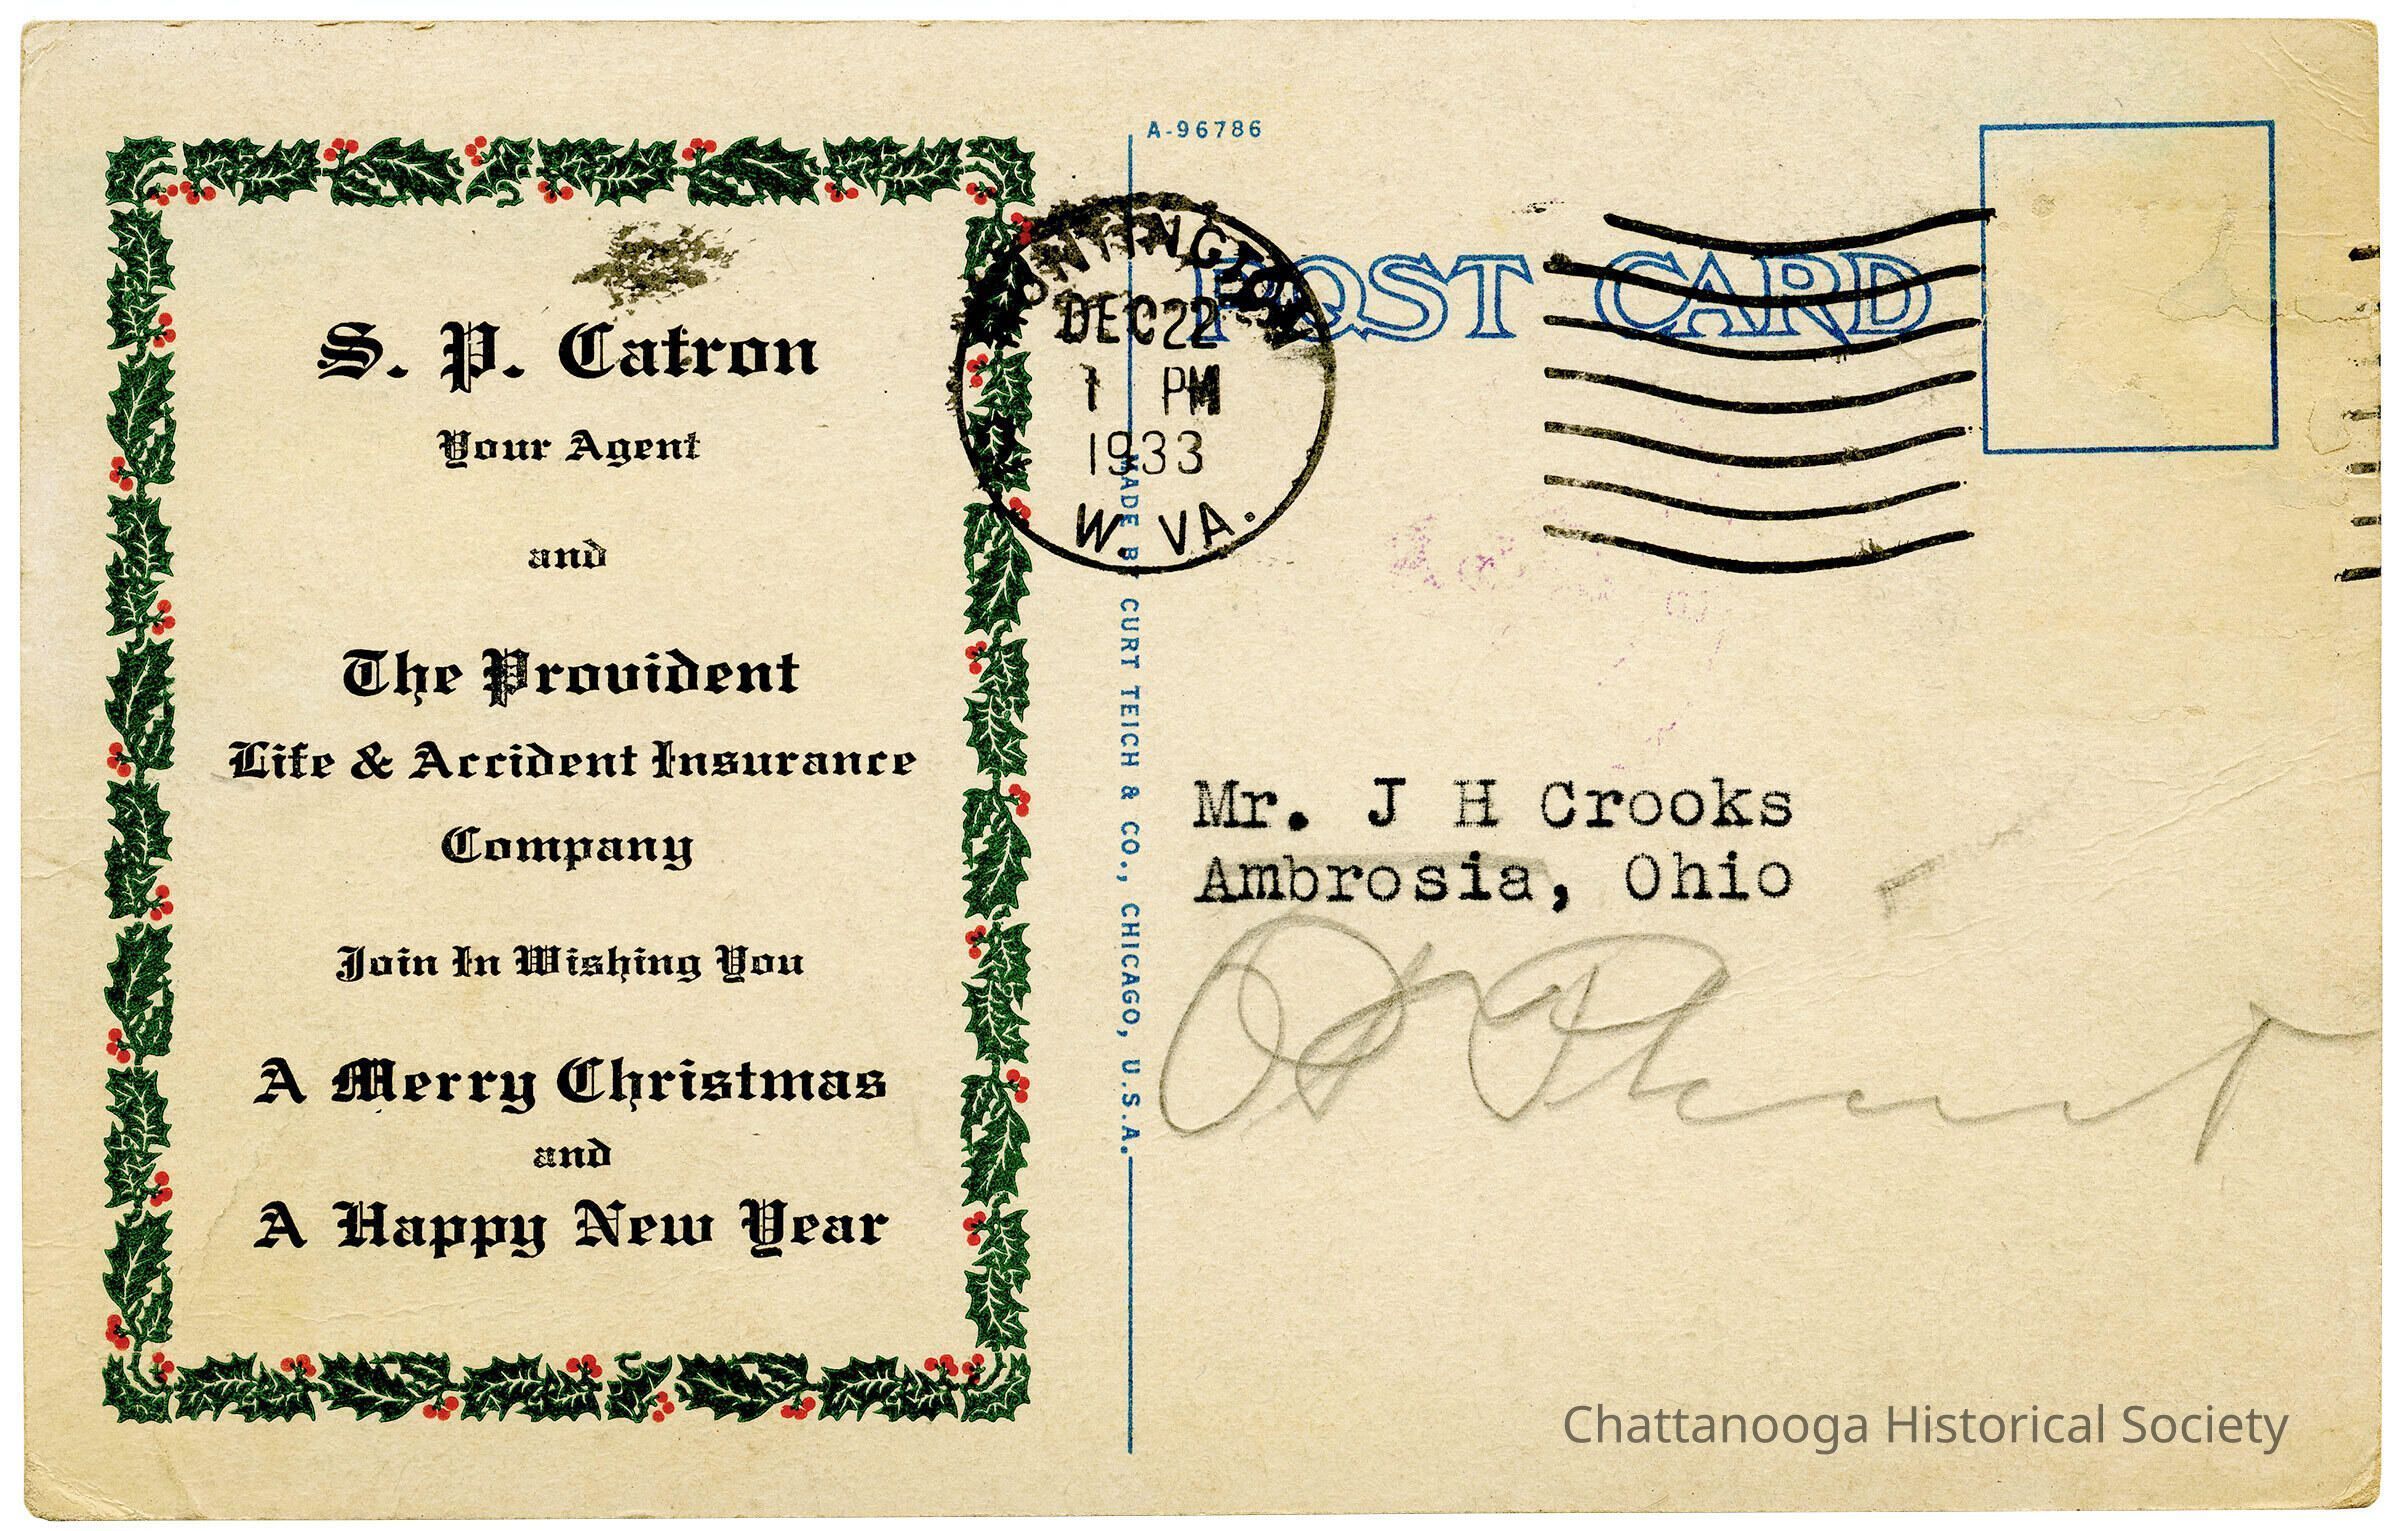 S. P. Catron
Your Agent
and
The Provident
Life & Accident Insurance
Company
Join In Wishing You
A Merry Christmas
and
A Happy New Year
A-96786
POST CARD
HUNTINGTON
DEC 22
1 PM
1933
W. VA.
MADE BY CURT TEICH & CO., CHICAGO, U.S.A.
Mr. J H Crooks
Ambrosia, Ohio
Chattanooga Historical Society